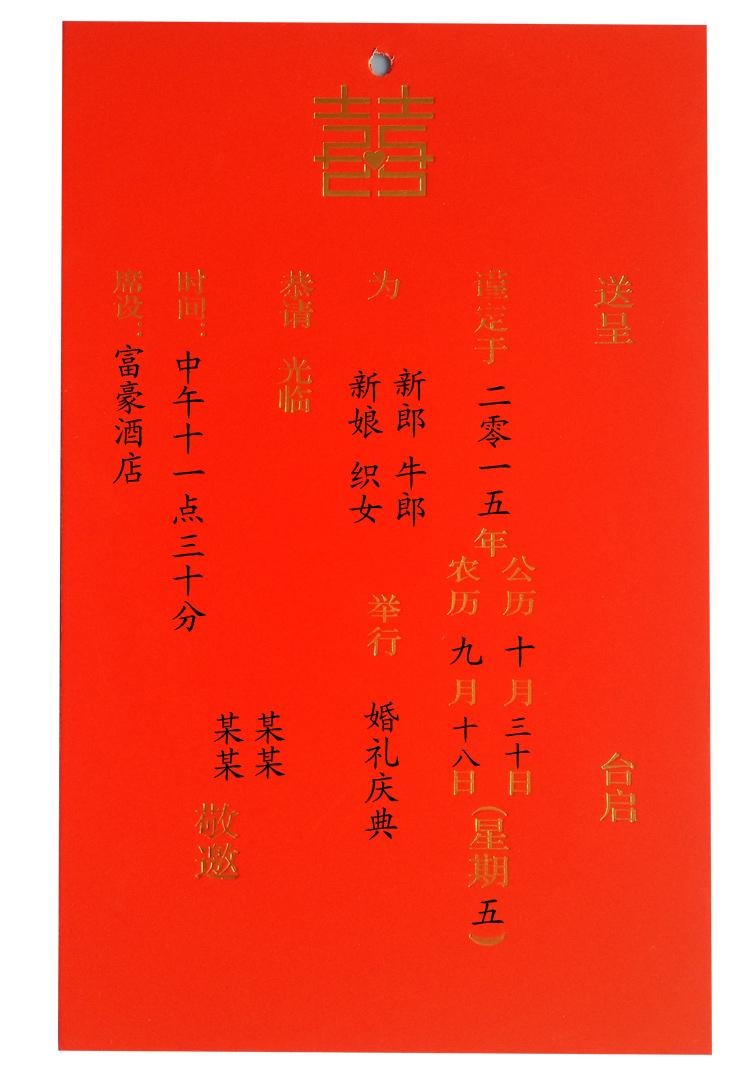 囍
送呈 台启
谨定于 二零一五年
公历 十月三十日
农历 九月十八日
(星期五)
为
新郎 牛郎
新娘 织女
举行 婚礼庆典
恭请 光临
某某
某某
敬邀
时间：中午十一点三十分
席设：富豪酒店